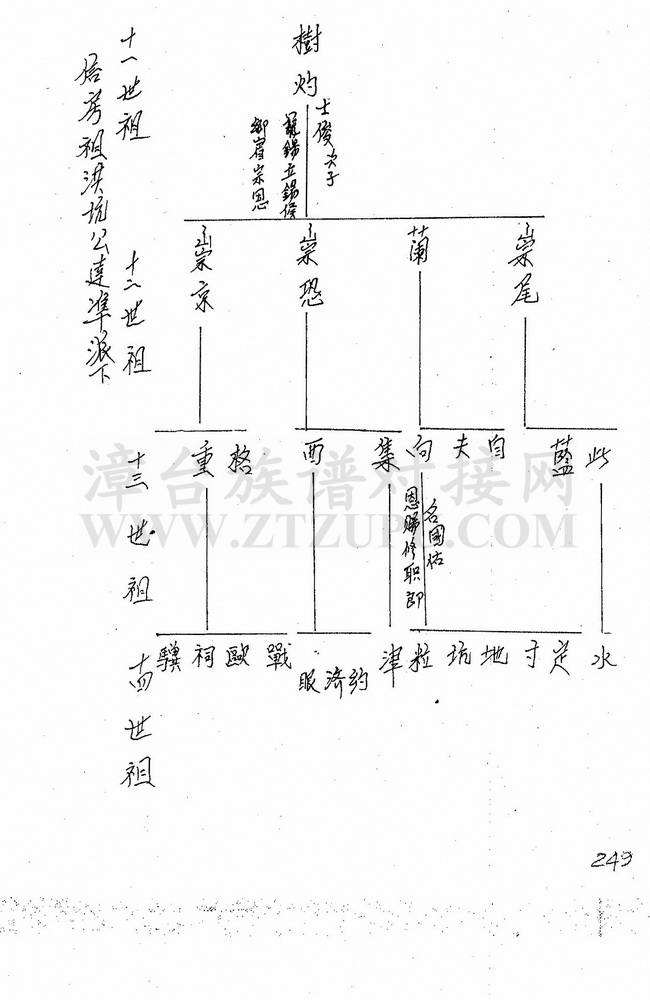 樹灼
士俊次子
鄉宿宗恩
崇尾
蘭
崇恐
崇京
此
藍
自
夫
向
集
西
格
重
名國佑
恩賜修职郎
水
定
寸
地
坑
粒
津
約
濟
眼
戰
歐
祠
驥
十一世祖
十二世祖
十三世祖
十四世祖
房祖洪坑公達準派下
漳台族谱对接网
WWW.ZTZUPU.COM
249